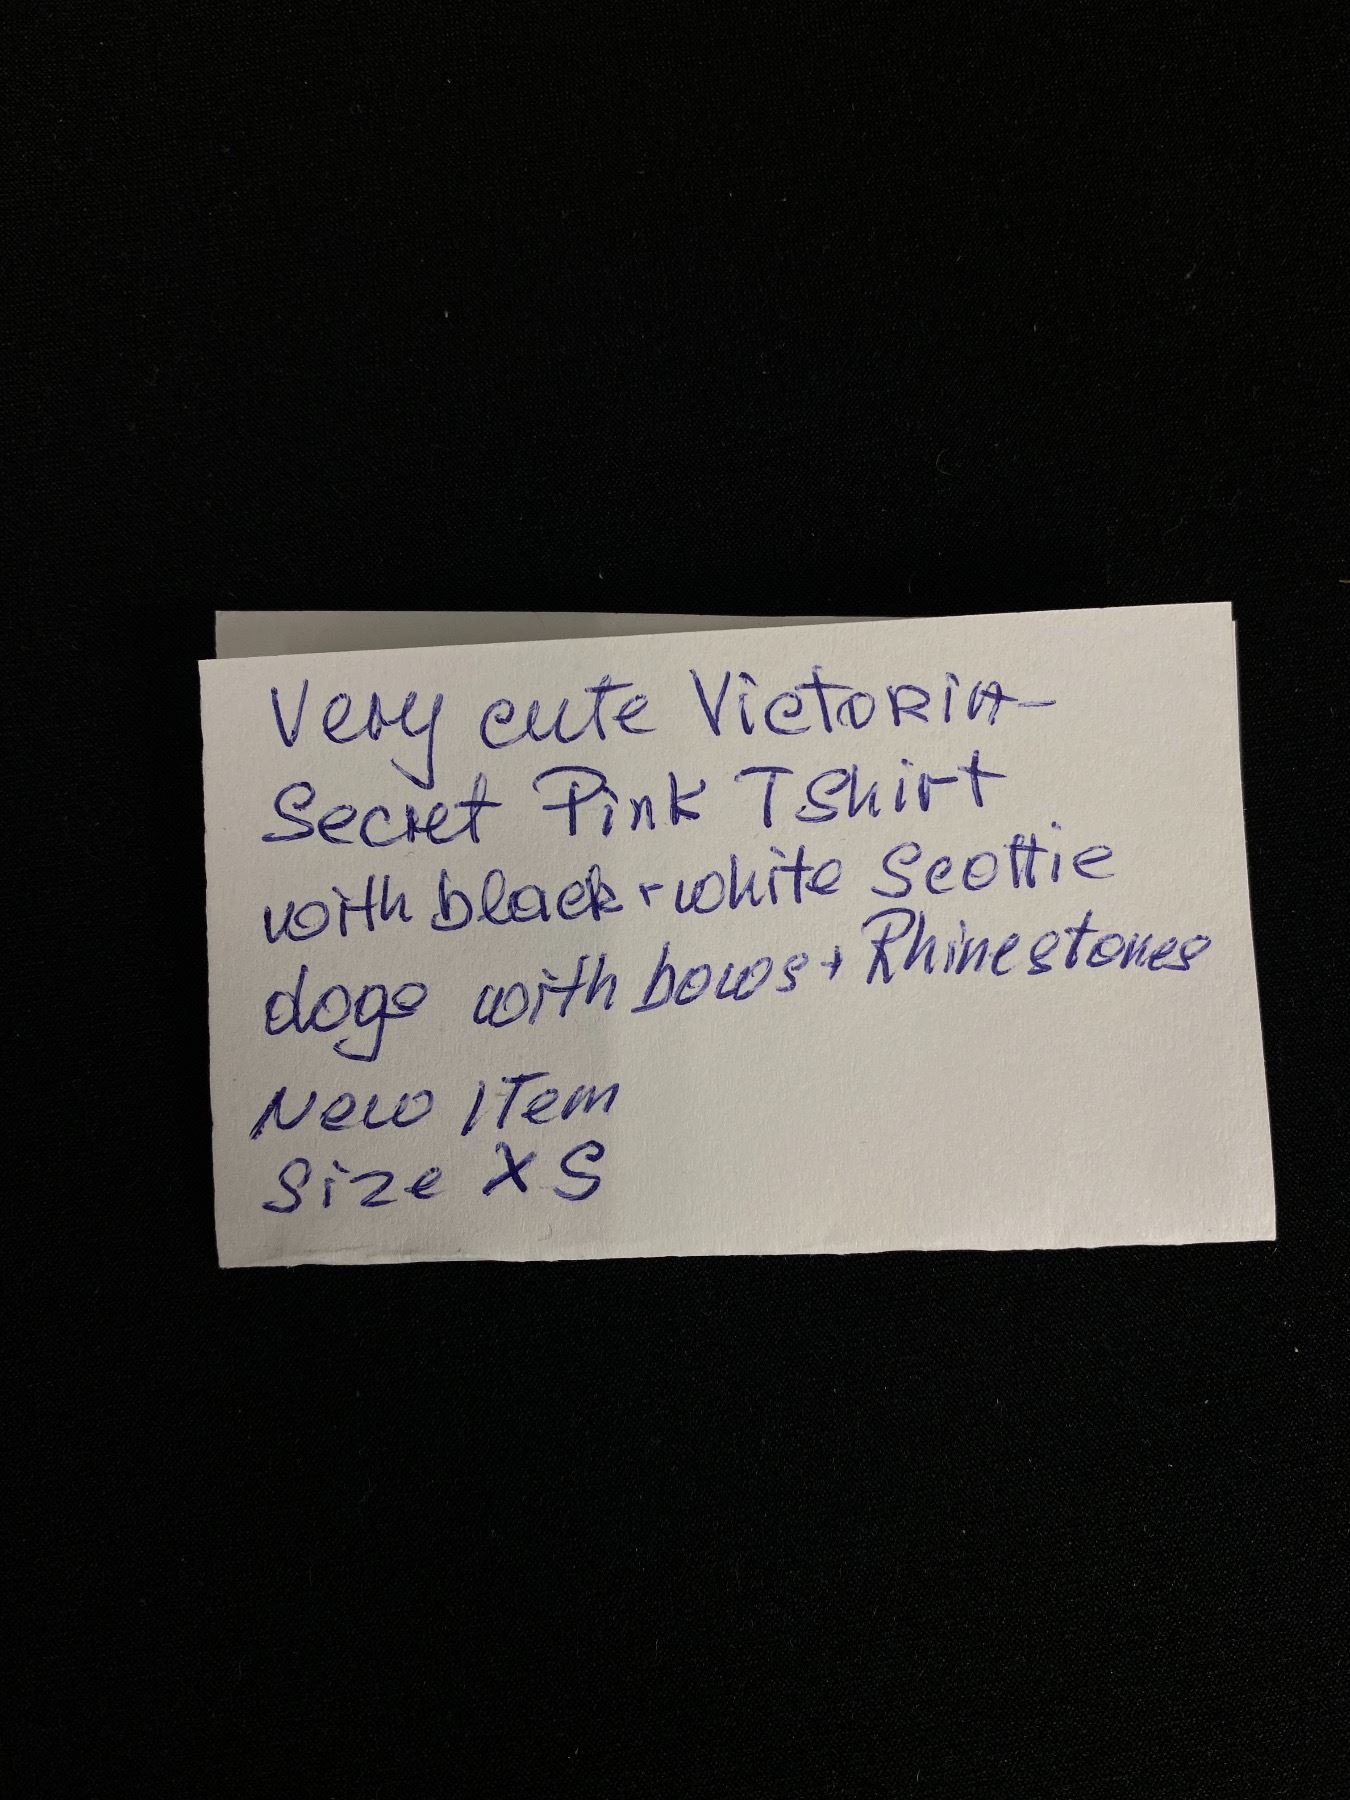 Very cute Victoria
Secret Pink T Shirt
with black + white Scottie
dogs with bows + Rhinestones
New Item
Size XS